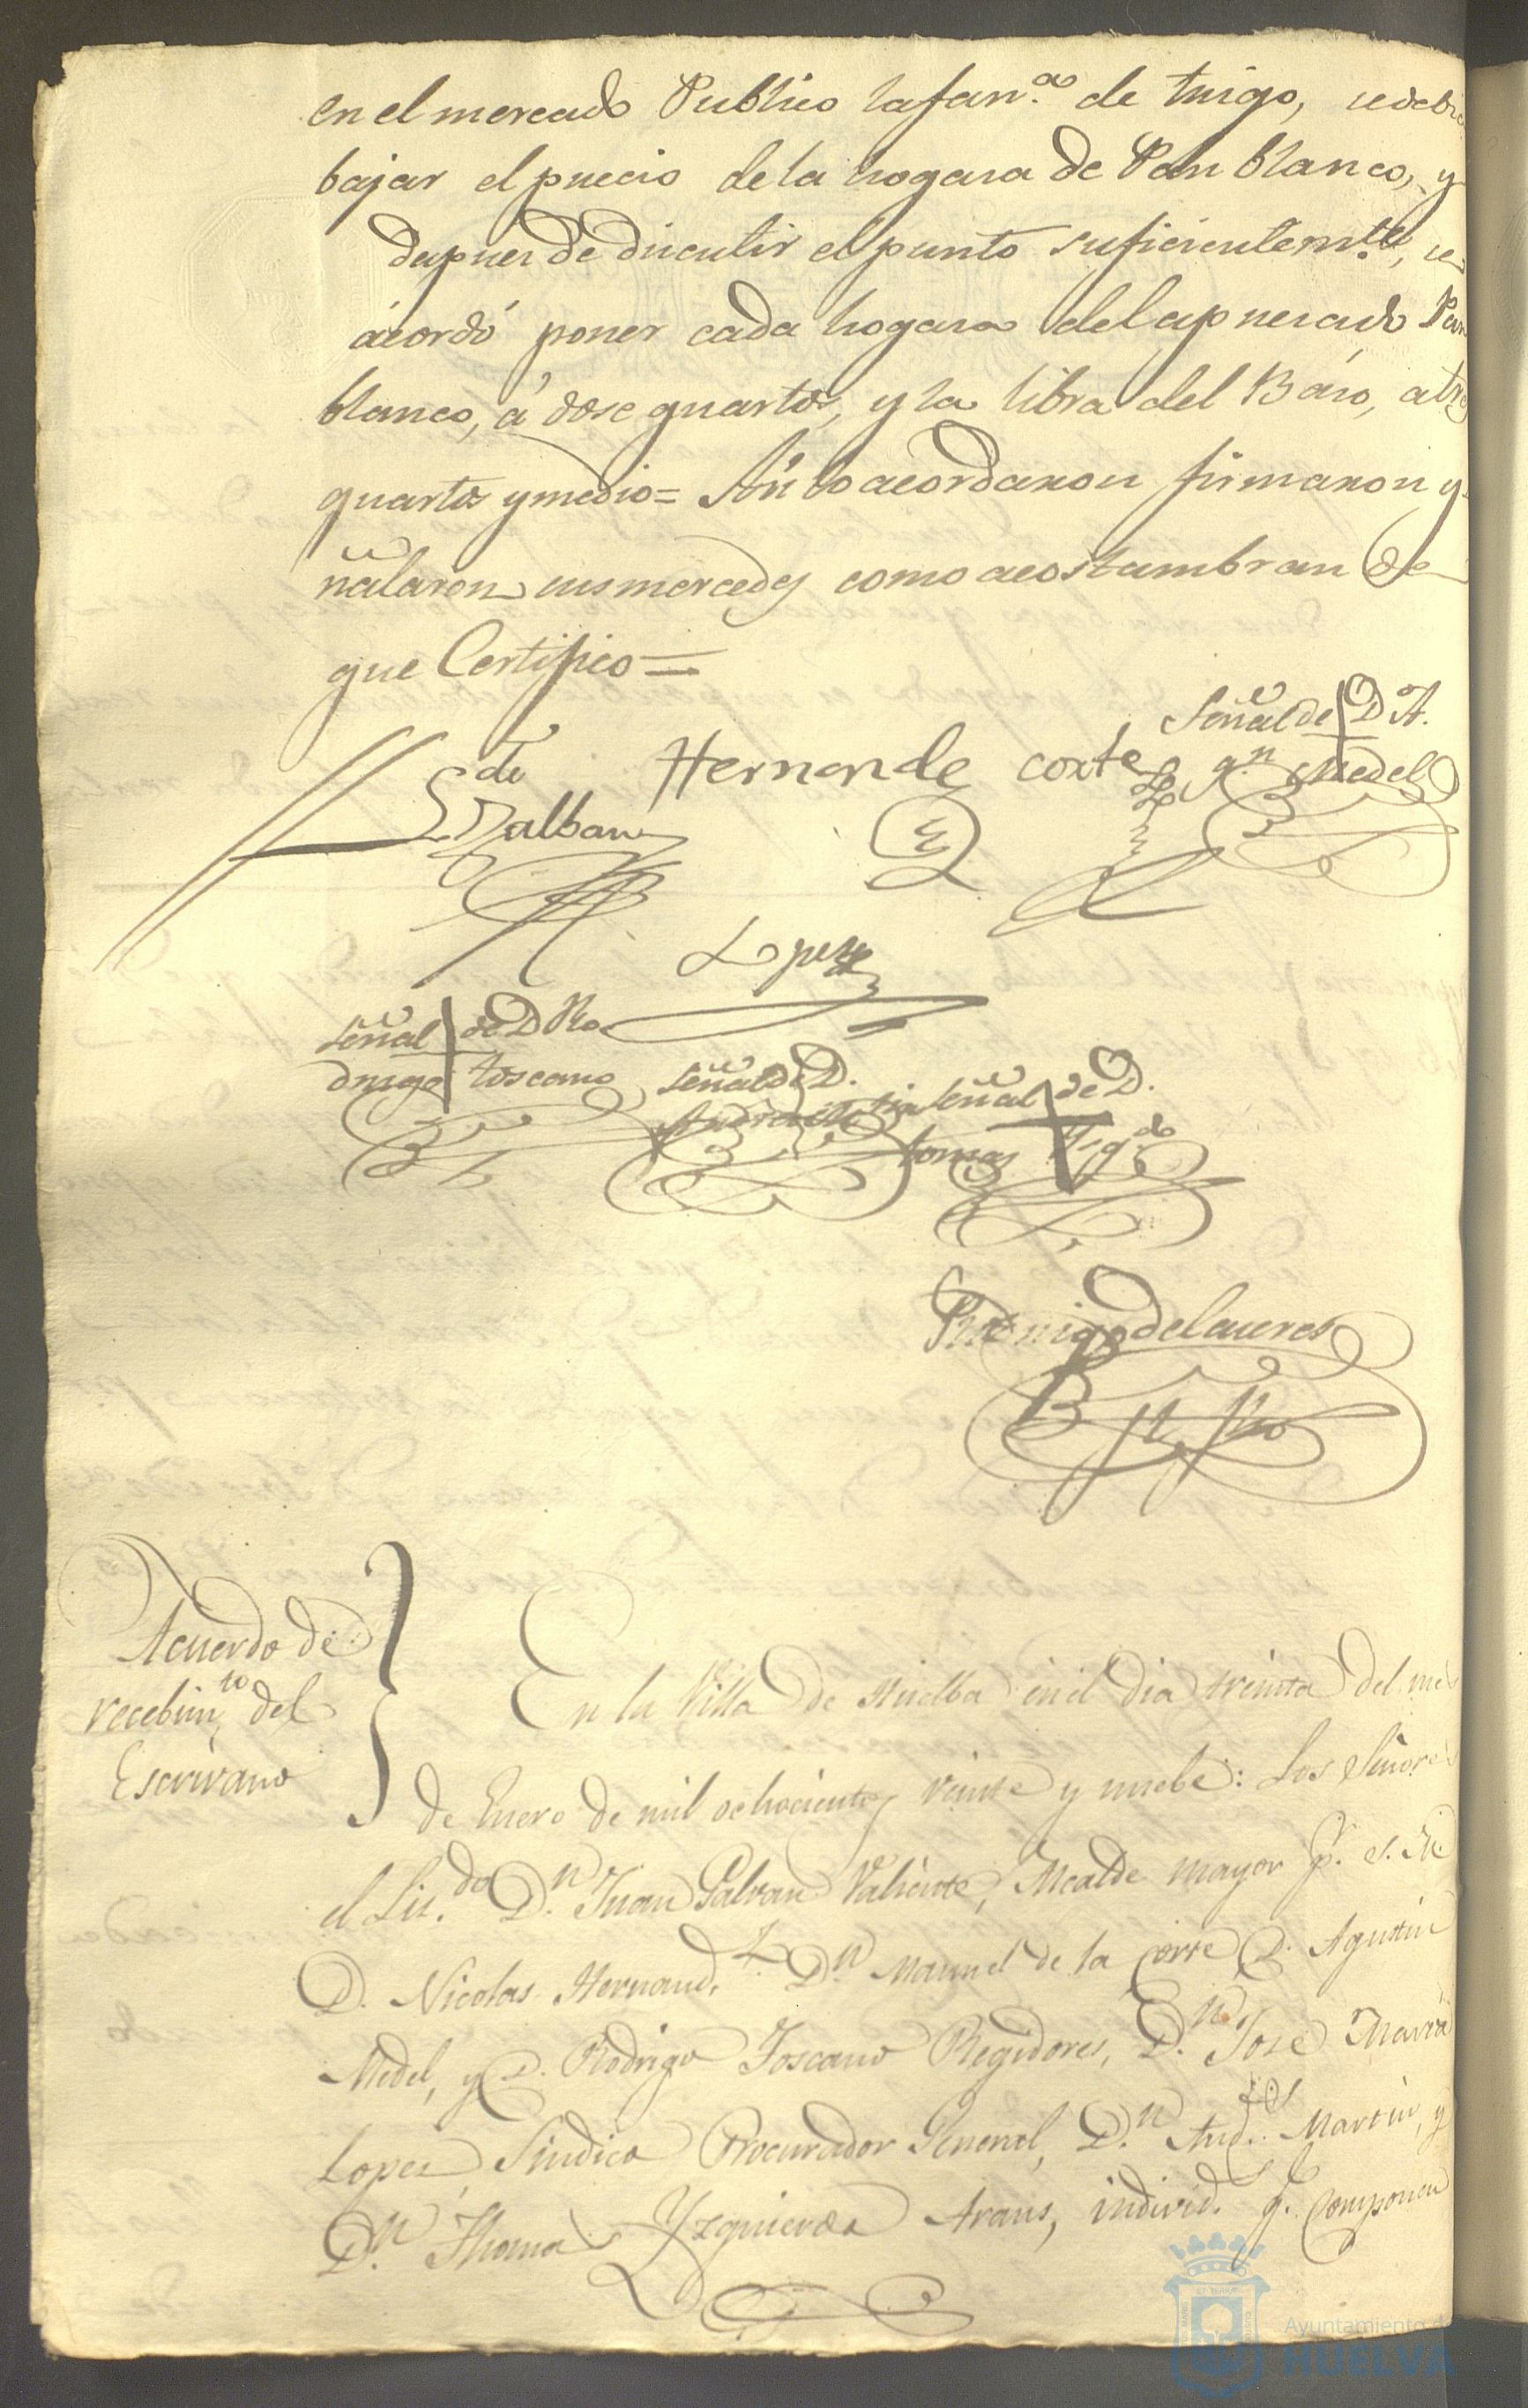 en el mercado Publico la fan.ª de trigo, se debi
bajar el precio de la hogasa de Pan blanco, y
despues de discutir el punto suficientem.te, se
acordó poner cada hogasa del expresado Pan
blanco, á dose quartos, y la libra del Baso, a tres
quartos y medio= Asi lo acordaron firmaron y
ñalaron sus mercedes como acostumbran de
que Certifico=
Señal de D A.
L.do Galban
Hernandez
corte
g.n Medel
Lopez
Señal de D Ro
drigo toscano
Señal de D.
Andres Martin
Señal de D.
tomas Isq.do
Acuerdo de
recebim.to del
Escrivano
En la Villa de Huelba en el dia treinta del mes
de Enero de mil ochocientos veinte y nuebe: Los Señores
el Lic.do D.n Juan Galvan Valiente, Alcalde mayor p.r S. M.
D. Nicolas Hernand.z D.n Manuel de la Corte D. Agustin
Medel, y D. Rodrigo Toscano Regidores, D.n Jose Maria
Lopez Sindico Procurador General, D.n And.s Martin, y
D.n Thomas Yzquierdo Arans, individ.s q.e componen
Ayuntamiento de
HUELVA